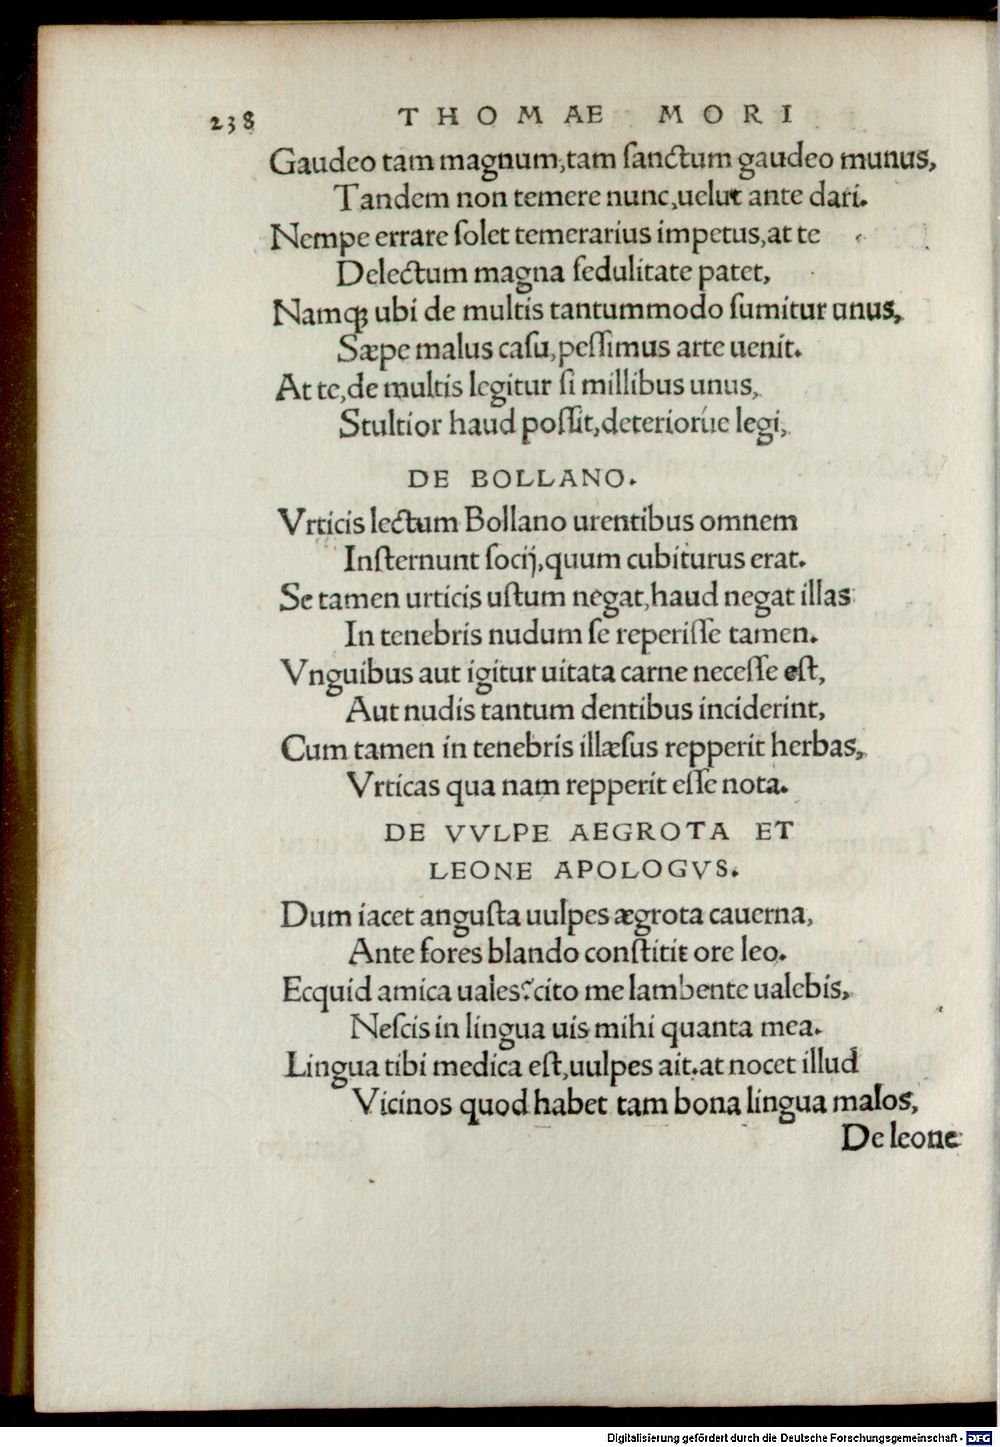 238 THOMAE MORI
Gaudeo tam magnum,tam ſanctum gaudeo munus,
Tandem non temere nunc,uelut ante dari.
Nempe errare ſolet temerarius impetus,at te
Delectum magna ſedulitate patet,
Namqꝫ ubi de multis tantummodo ſumitur unus,
Sæpe malus caſu,peſſimus arte uenit.
At te,de multis legitur ſi millibus unus,
Stultior haud poſſit,deteriorúe legi,
DE BOLLANO.
Vrticis lectum Bollano urentibus omnem
Inſternunt ſocij,quum cubiturus erat.
Se tamen urticis uſtum negat,haud negat illas
In tenebris nudum ſe reperiſſe tamen.
Vnguibus aut igitur uitata carne neceſſe eſt,
Aut nudis tantum dentibus inciderint,
Cum tamen in tenebris illæſus repperit herbas,
Vrticas qua nam repperit eſſe nota.
DE VVLPE AEGROTA ET
LEONE APOLOGVS.
Dum iacet anguſta uulpes ægrota cauerna,
Ante fores blando conſtitit ore leo.
Ecquid amica uales?cito me lambente ualebis,
Neſcis in lingua uis mihi quanta mea.
Lingua tibi medica eſt,uulpes ait.at nocet illud
Vicinos quod habet tam bona lingua malos,
De leone
Digitalisierung gefördert durch die Deutsche Forschungsgemeinschaft - DFG